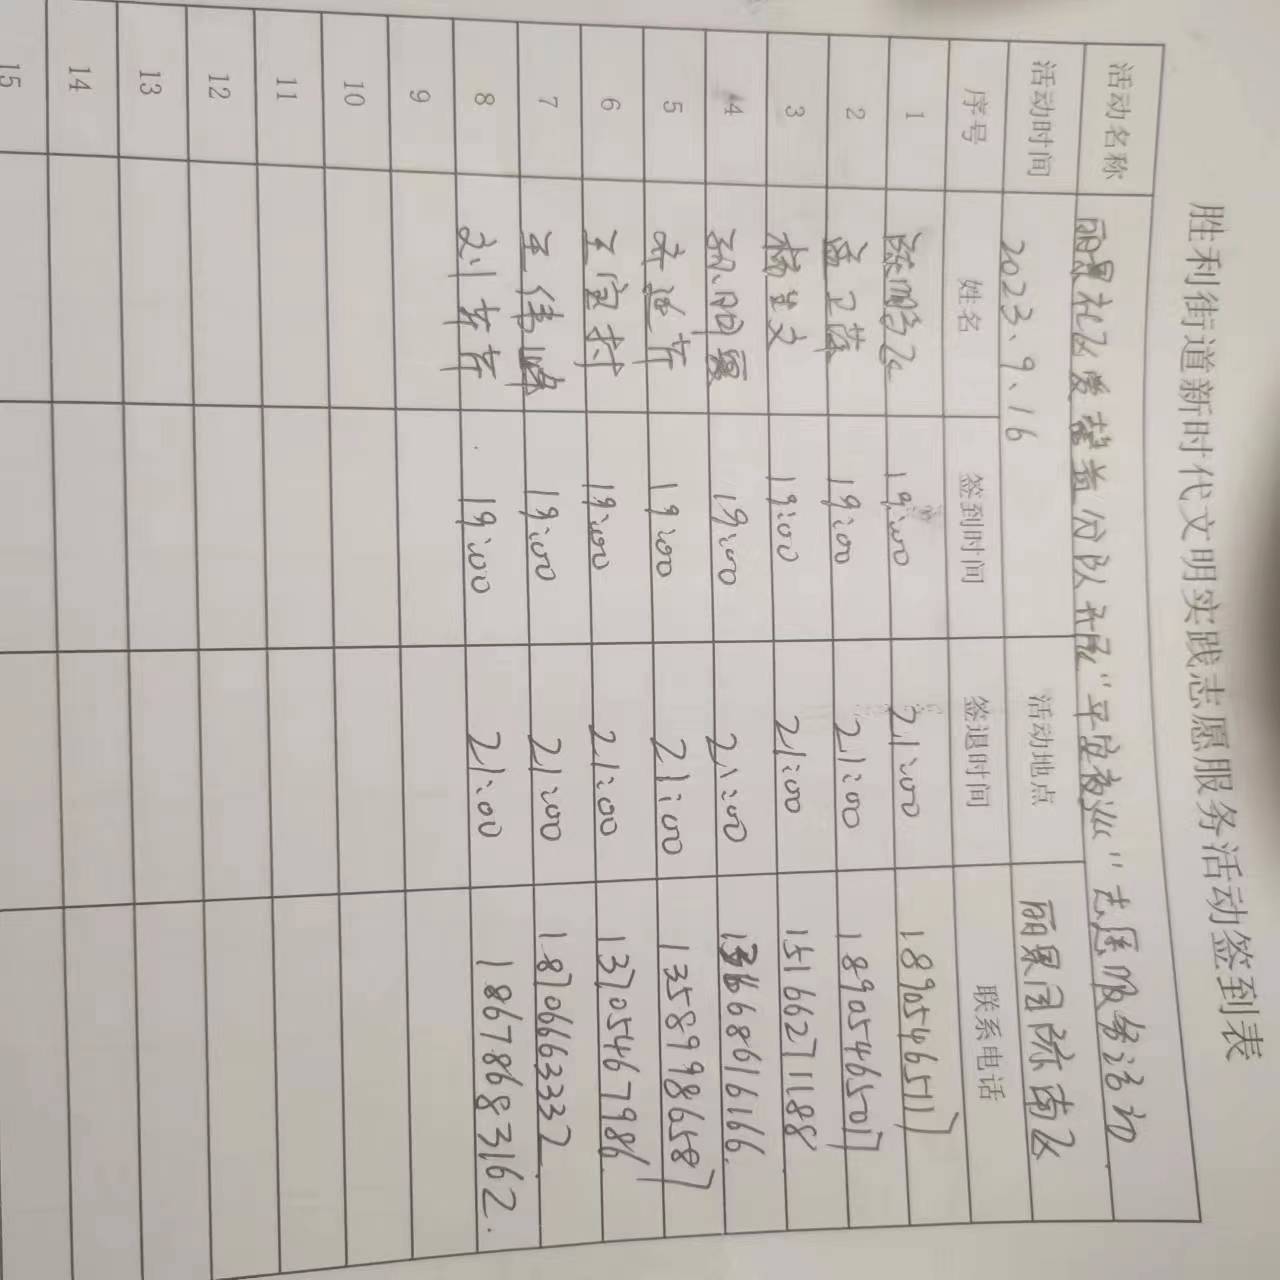 胜利街道新时代文明实践志愿服务活动签到表
活动名称 丽景社区爱馨益分队开展"平安夜巡"志愿服务活动
活动时间 2023.9.16 活动地点 丽景园 南区
序号 姓名 签到时间 签退时间 联系电话
1 19:00 21:00 18905465117
2 孟卫萍 19:00 21:00 18905465017
3 杨生文 19:00 21:00 15166271188
4 19:00 21:00
5 19:00 21:00 13589986587
6 王宝村 19:00 21:00 13705467986
7 王伟峰 19:00 21:00 18706663332
8 19:00 21:00 18678683162.
9
10
11
12
13
14
15